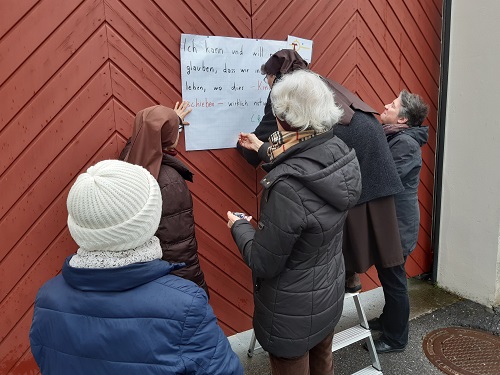 Ich kann und will
glauben, dass wir in
leben, wo dies – Ki
schieben – wirklich not